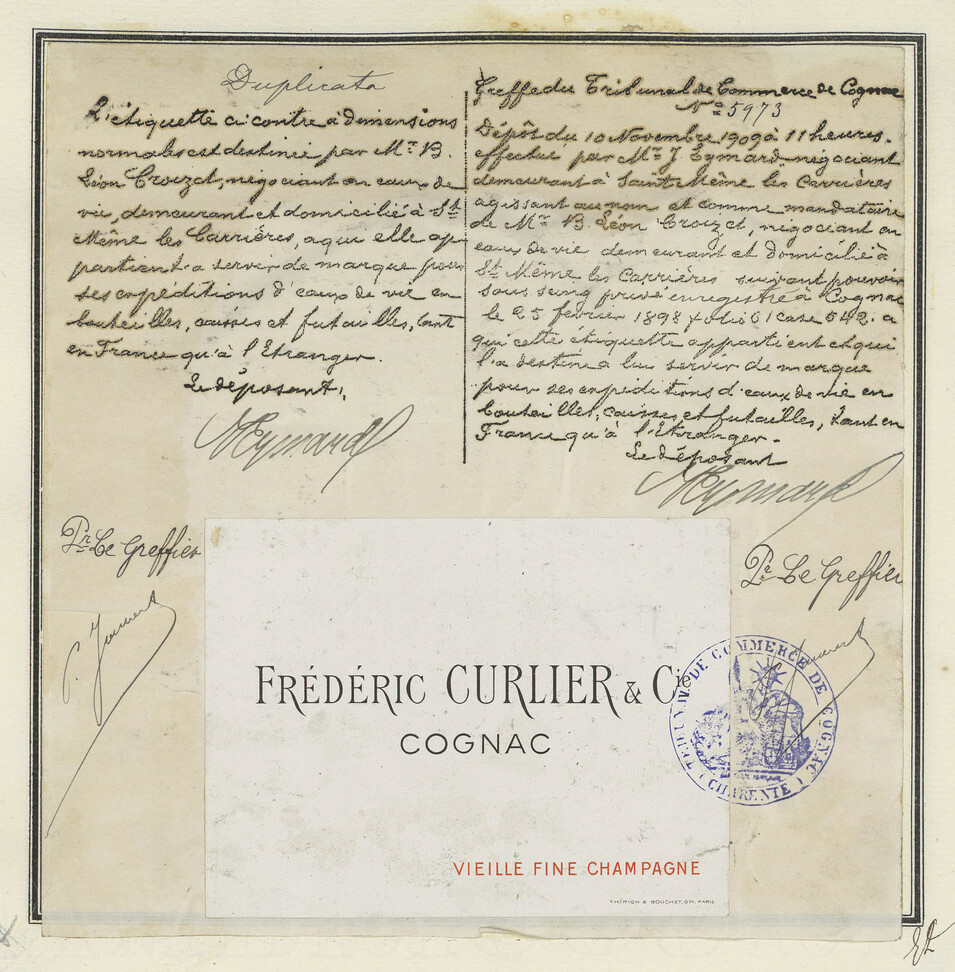 Duplicata
L'étiquette ci contre à dimensions
normales est destinée par Mr. B.
Léon Croizet, négociant en eaux de
vie, demeurant et domicilié à St.
Même les Carrières, a qui elle ap-
partient a servir de marque pour
ses expéditions d'eaux de vie en
bouteilles, caisses et futailles, tant
en France qu'à l'Etranger.
Le déposant,
Eymard
Greffe du Tribunal de Commerce de Cognac
No 5973
Dépôt du 10 Novembre 1909 à 11 heures.
effectué par Mr. J. Eymard négociant
demeurant à Saint Même les Carrières
agissant au nom et comme mandataire
de Mr. B. Léon Croizet, négociant en
eaux de vie demeurant et domicilié à
St. Même les Carrières suivant pouvoir
sous seing privé enregistré à Cognac
le 25 février 1898 folio 61 case 542. a
qui cette étiquette appartient et qui
l'a destinée à lui servir de marque
pour ses expéditions d'eaux de vie en
bouteilles, caisses et futailles, tant en
France qu'à l'Etranger.
Le déposant
Eymard
Pr. Le Greffier
Pr. Le Greffier
FRÉDÉRIC CURLIER & Cie
COGNAC
VIEILLE FINE CHAMPAGNE
THIRION & BOUCHET, Str. PARIS
TRIBUNAL DE COMMERCE DE COGNAC
(CHARENTE)